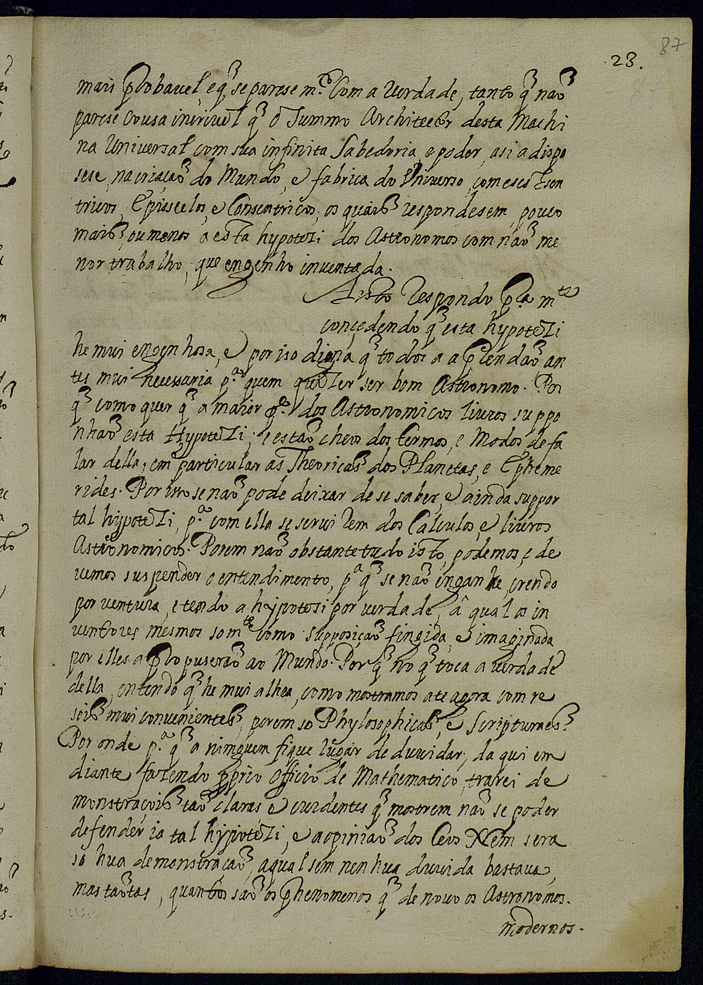 87
.23.
mais probauel e q̃ se parese m.to Com a verdade, tanto q̃ não
parese Cousa incrivel q̃ o Summo Architector desta Machi
na Universal com sua infinita Sabedoria, e poder, asi a dispo
sese, na criação do Mundo, e fabrica do Vniverso, com esces Esen
tricos, Episiclos, e Consentricos, os quais respondesem pouco
mais, ou menos a esta hypotesi dos Astronomos com não me
nor trabalho, que engenho inventada.
A isto Respondo p.ra m.te
concedendo q̃ esta hypotesi
he mui engenhosa, e por iso digna q̃ todos a aprendão an
tes mui necessaria p.a quem quiser ser bom Astronomo. Por
q̃ como quer q̃ a maior p.te dos Astronomicos livros suppo
nhão esta Hypotesi, e estão cheos dos termos, e Modos de fa
lar della, em particular as Theoricas dos Planetas, e Epheme
rides. Por isso se não pode deixar de se saber, e ainda suppor
tal hypotesi, p.a com ella se servirem dos Calculos e livros
Astronomicos. Porem não obstante tudo isto, podemos, e de
vemos suspender o entendimento, p.a q̃ se não engane, crendo
por ventura, e tendo a hypotesi por verdade, a qual os in
ventores mesmos som.te como supposição fingida, e imaginada
por elles a propuserão ao Mundo. Por q̃ no q̃ toca a verdade
della, entendo q̃ he mui alhea, como mostramos ate agora com re
sois mui convenientes, porem so Phylosophicas, e Scripturaes.
Por onde p.a q̃ a ninguem fique lugar de duvidar, da qui em
diante fazendo proprio Officio de Mathematico, trarei de
monstraçois tão claras e evidentes q̃ mostrem não se poder
defender ia tal hypotesi, e a opinião dos Ceos Nem sera
so hua demonstração, a qual sem nenhua duvida bastava,
mas tantas, quantos são os phenomenos q̃ de novo os Astronomos.
modernos.